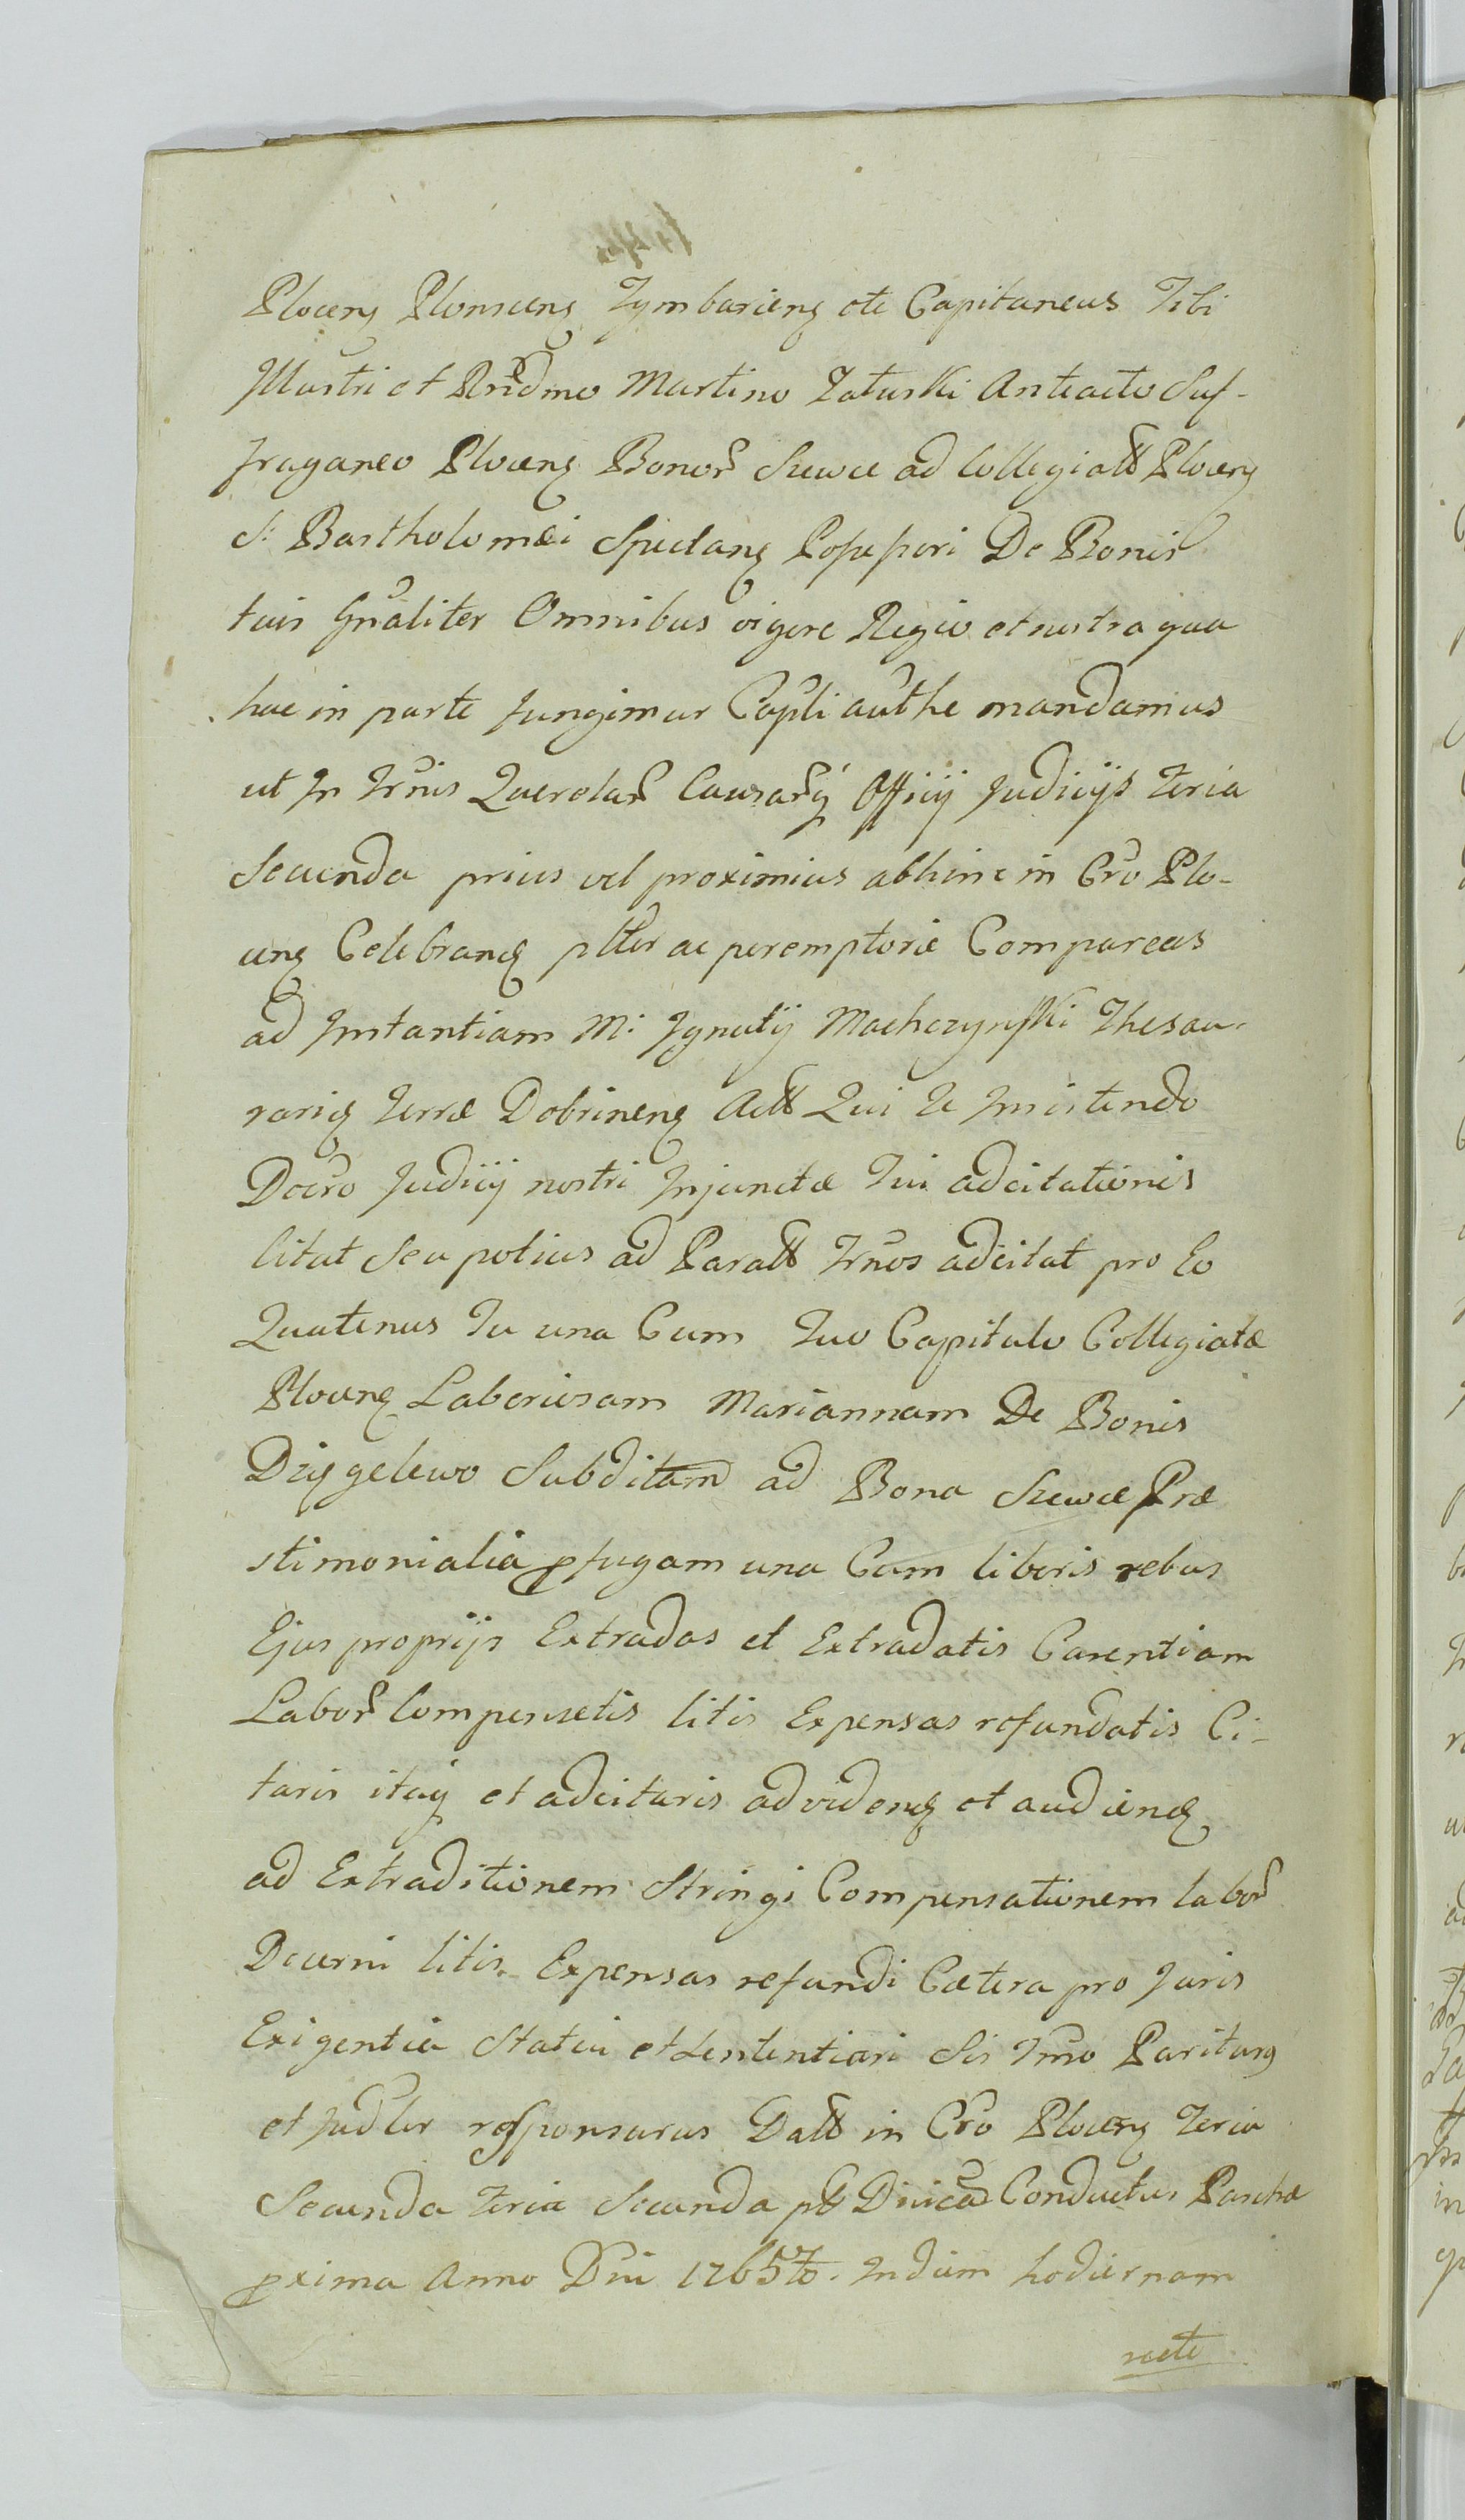 Plocens Plonscens Zymbariens etc Capitaneus Tibi
Illustri et Rndmo Martino Załuski Anteacto Suf-
fraganeo Plocens Bonor Szewce ad Collegiatt Plocens
S: Bartholomæi Spectans Possessori De Bonis
tuis Gnaliter Omnibus vigore Regio et nostra qua
hac in parte fungimur Capli authe mandamus
ut In Trnis Querelar Causarq Officij Judicijs Feria
Secunda prius vel proximius abhinc in Cro Plo-
cens Celebrand pltter ac peremptorie Compareas
ad Instantiam M: Ignatij Machczynski Thesau-
rarij Terræ Dobrinens Actt Qui Te Insistendo
Decro Judicij nostri Injunctæ Tui adcitationis
Citat Seu potius ad Paratt Trnos adcitat pro Eo
Quatenus Tu una Cum Tuo Capitulo Collegiatæ
Plocens Laboriosam Mariannam De Bonis
Dzięgelewo Subditam ad Bona Szewce Præ
stimonialia pfugam una Cum liberis rebus
Ejus proprijs Extradas et Extradatis Carentiam
Labor Compensetis litis Expensas refundatis Ci-
taris itaq et adcitaris ad vidend et audiend
ad Extraditionem Stringi Compensationem labor
Decerni litis Expensas refundi Cætera pro Juris
Exigentia Statui et Sententiari Sis Trno Pariturus
et Judler responsurus Datt in Cro Plocens Feria
Secunda Feria Secunda pt Dnicam Conductus Paschæ
pxima Anno Dni 1765to. In diem hodiernam
recte